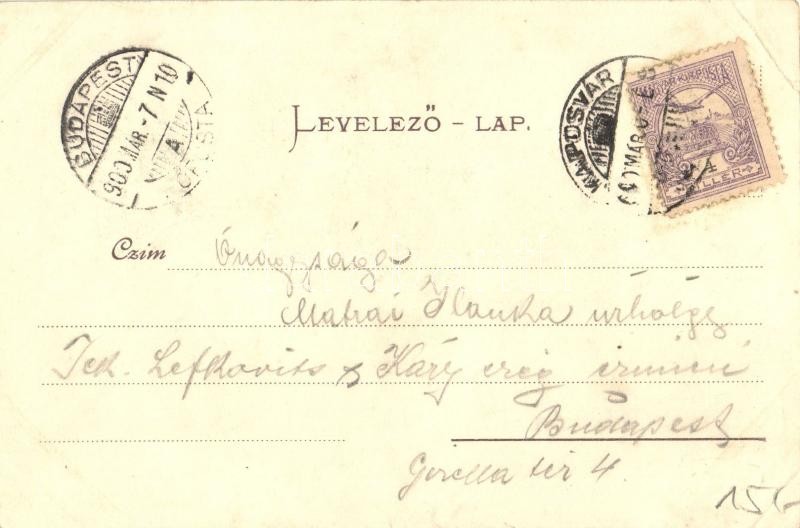 BUDAPEST
900 MÁR. -7 N 10
A
POSTA
LEVELEZŐ - LAP.
KAPOSVÁR
900 MÁR. 6
MAGYAR KIR. POSTA
4
FILLÉR
Czím Őnagysága
Matrai Ilonka úrhölgy
Tek. Lefkovits s Káry czég czímén
Budapest
tér 4.